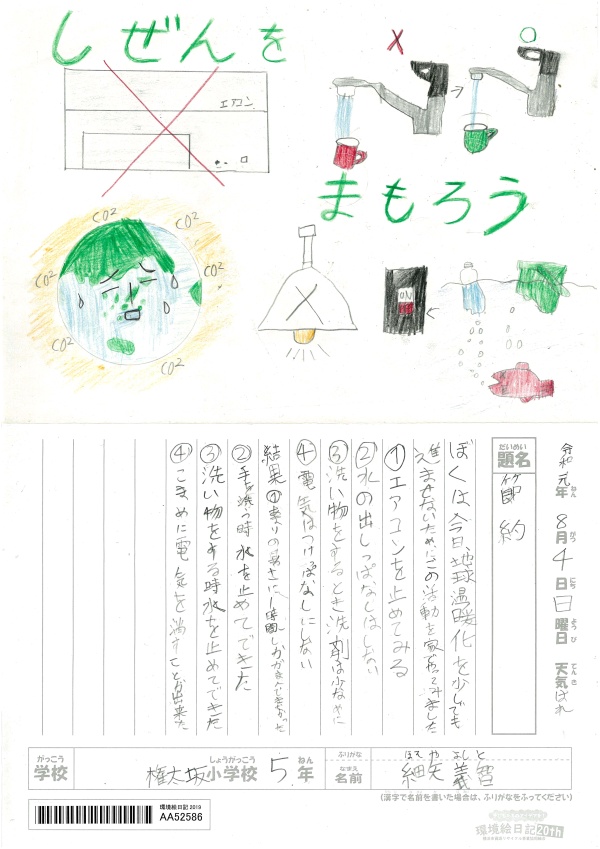 しぜんを
エアコン
まもろう
CO2
CO2
CO2
CO2
CO2
CO2
ON
令和元年 8月4日日曜日 天気 はれ
ねん がつ にち ようび てんき
だいめい
題名 節約
ぼくは今日、地球温暖化を少しでも
進ませないために、この活動を家でやってみました
①エアコンを止めてみる
②水の出しっぱなしはしない
③洗い物をするとき洗剤は少なめに
④電気はつけっぱなしにしない
結果①あまりの暑さに1時間しかがまんできなかった
②手を洗う時水を止めてできた
③洗い物をする時水を止めてできた
④こまめに電気を消すことが出来た
がっこう しょうがっこう ねん
学校 権太坂小学校 5年
ふりがな ほそ や よし と
なまえ
名前 細矢 義
(漢字で名前を書いた場合は、ふりがなをふってください)
環境絵日記 2019
AA52586
環境絵日記20th